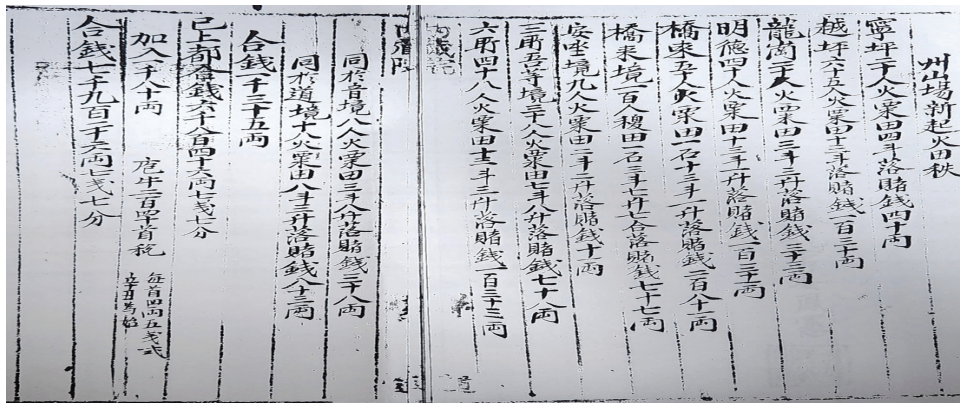 州山場新起火田秩
寧坪二十人火粟田四斗落賭錢四十両
越坪六十五人火粟田十三斗落賭錢一百三十両
龍崗二十人火粟田三斗三升落賭錢三十三両
明德四十人火粟田十三斗一升落賭錢一百三十一両
橋東五十人火粟田一石十三斗一升落賭錢二百八十一両
橋来境一百人稷田一石三斗七升七合落賭錢七十七両
安 境九人火粟田二斗二升落賭錢十両
三町五等境三十人火粟田七斗八升落賭錢七十八両
六町四十八人火粟田十三斗三升落賭錢一百三十三両
同於音境八人火粟田三斗八升落賭錢三十八両
同於道境十人火粟田八斗三升落賭錢八十三両
合錢一千三十五両
已上都合錢六千八百四十六両七戔七分
加入八千八十両 庖牛二百四十首稅 每首四両五戔式
辛丑為始
合錢七千九百二十六両七戔七分